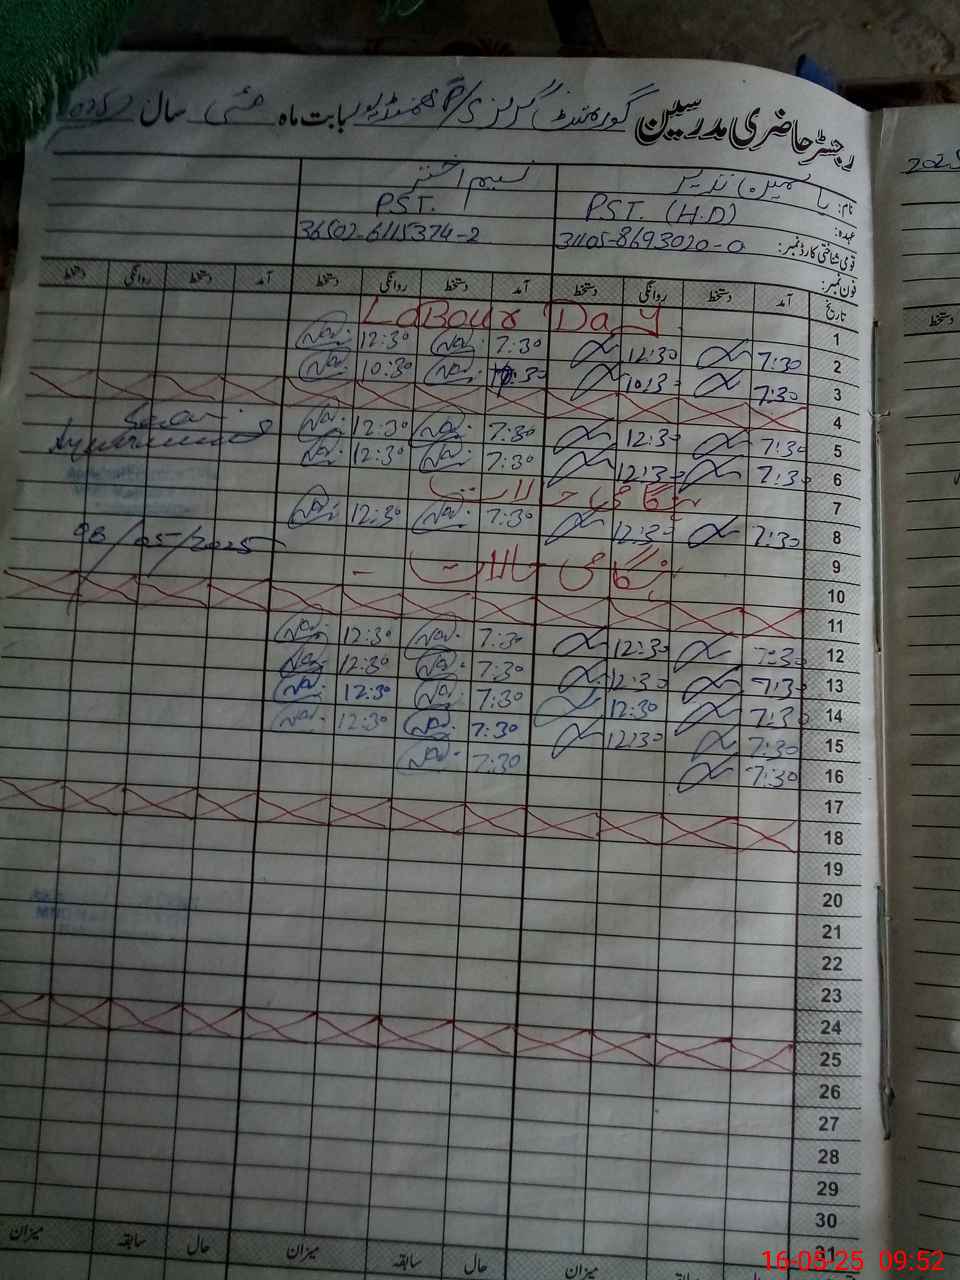 رجسٹر حاضری مدرسین گورنمنٹ گرلز P/S بابت ماہ مئی سال 2025
نام: یاسمین نذیر نسیم اختر
عہدہ: PST. (H.D) P.S.T.
قومی شناختی کارڈ نمبر: 31105-8693020-0 36502-6115374-2
فون نمبر:
تاریخ آمد دستخط روانگی دستخط آمد دستخط روانگی دستخط آمد دستخط روانگی دستخط
1 Labour Day
2 7:30 12:30 7:30 12:30
3 7:30 10:30 10:30
4
5 7:30 12:30 7:30 12:30
6 7:30 12:30 7:30 12:30
7 ہنگامی حالات
8 7:30 12:30 7:30 12:30
08/05/2025
9 ہنگامی حالات -
10
11
12 7:30 12:30 7:30 12:30
13 7:30 12:30 7:30 12:30
14 7:30 12:30 7:30 12:30
15 7:30 12:30 7:30 12:30
16 7:30 7:30
17
18
19
20
21
22
23
24
25
26
27
28
29
30
31
میزان سابقہ حال میزان سابقہ حال میزان
2025
دستخط
16-05-25 09:52